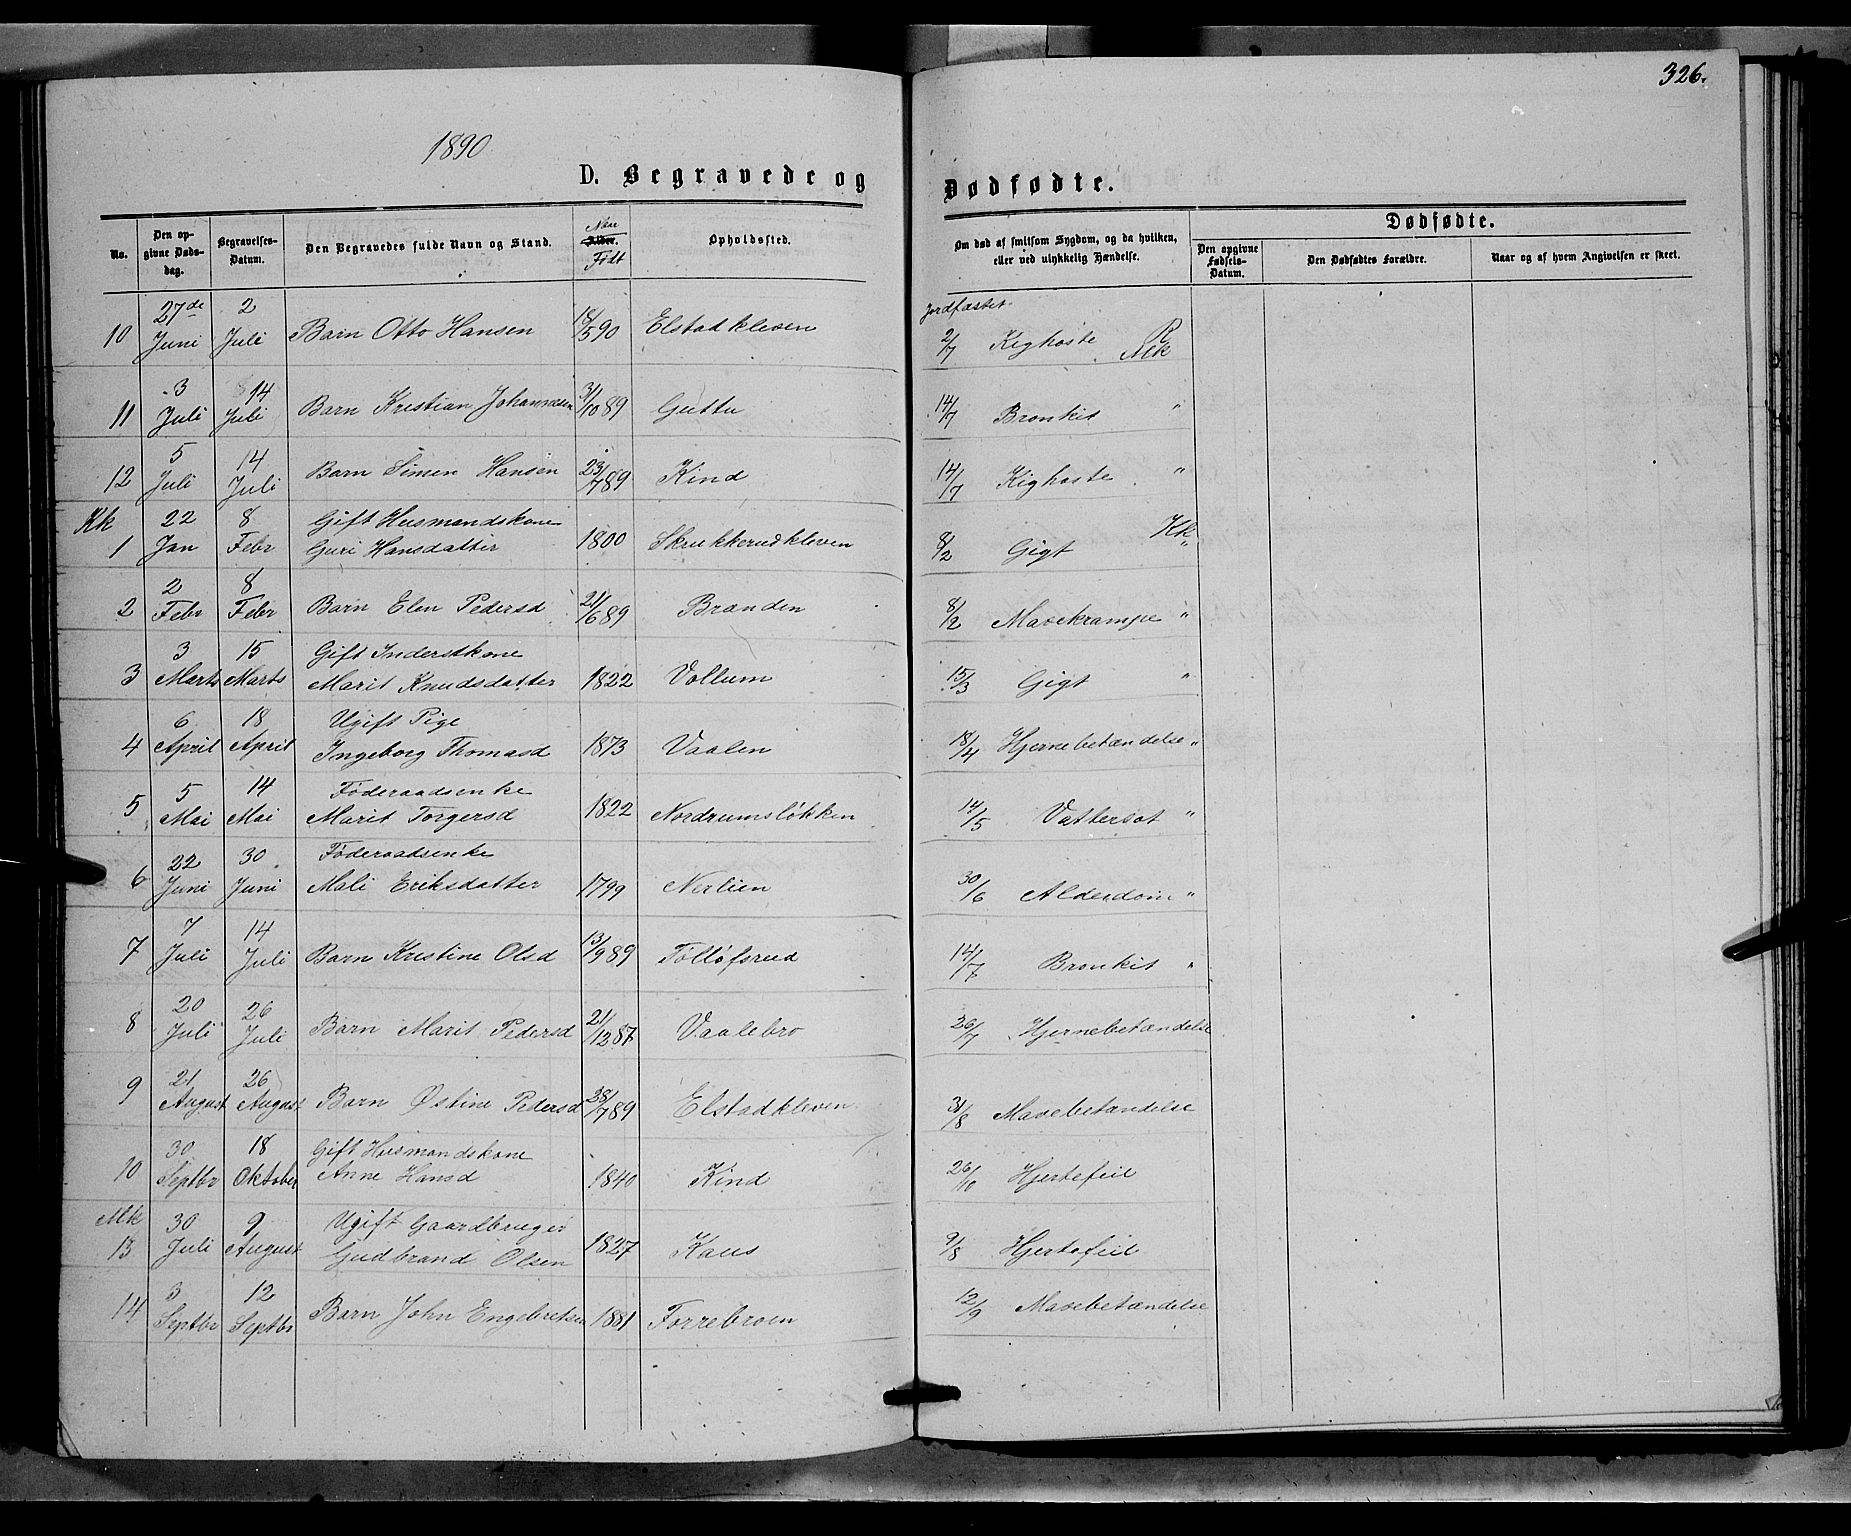 326.
1890
D. Begravede og Dødfødte.
No.
Den opgivne Dødsdag.
Begravelses-Datum.
Den Begravedes fulde Navn og Stand.
Alder.
Født
Opholdssted.
Om død af smitsom Sygdom, og da hvilken, eller ved ulykkelig Hændelse.
Dødfødte.
Den opgivne Fødsels-Datum.
Den Dødfødtes Forældre.
Naar og af hvem Angivelsen er skeet.
Jordfæstet
10 27de Juni 2 Juli Barn Otto Hansen 18/5 90 Elstadkleven 2/7 Kighoste R Mk
11 3 Juli 14 Juli Barn Kristian Johannesen 31/10 89 Guttu 14/7 Bronkit "
12 5 Juli 14 Juli Barn Simen Hansen 23/7 89 Kind 14/7 Kighoste "
Kk
1 22 Jan 8 Febr Gift Husmandskone Guri Hansdatter 1800 Skrukkerudkleven 8/2 Gigt Kk "
2 2 Febr 8 Febr Barn Elen Pedersd 21/6 89 Branden 8/2 Mavekrampe "
3 3 Marts 15 Marts Gift Inderstkone Marit Knudsdatter 1822 Vollum 15/3 Gigt "
4 6 April 18 April Ugift Pige Ingeborg Thomasd 1873 Vaalen 18/4 Hjernebetændelse "
5 5 Mai 14 Mai Føderaadsenke Marit Torgersd 1822 Nordrumsløkken 14/5 Vattersot "
6 22 Juni 30 Juni Føderaadsenke Mali Eriksdatter 1799 Nerlien 30/6 Alderdom "
7 7 Juli 14 Juli Barn Kristine Olsd 13/9 89 Tolløfsrud 14/7 Bronkit "
8 20 Juli 26 Juli Barn Marit Pedersd 21/12 87 Vaalebro 26/7 Hjernebetændelse
9 21 August 26 August Barn Østine Pedersd 28/7 89 Elstadkleven 31/8 Mavebetændelse
10 30 Septbr 18 Oktober Gift Husmandskone Anne Hansd 1840 Kind 26/10 Hjertefeil
Mk
13 30 Juli 9 August Ugift Gaardbruger Gudbrand Olsen 1827 Kaus 9/8 Hjertefeil
14 3 Septbr 12 Septbr Barn John Engebretsen 1881 Forrebroen 12/9 Mavebetændelse